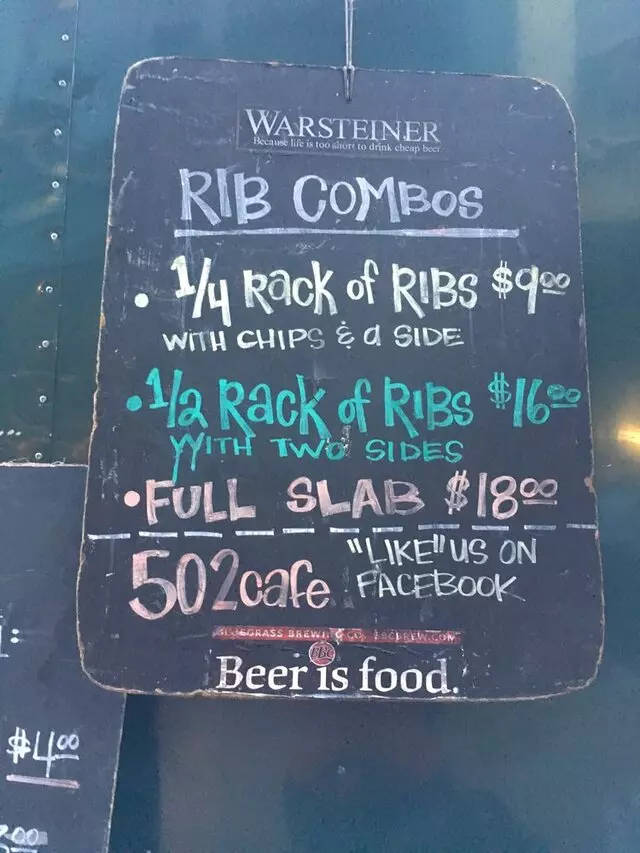 WARSTEINER
Because life is too short to drink cheap beer
RIB COMBOS
• 1/4 Rack of RIBS $900
WITH CHIPS & a SIDE
• 1/2 Rack of RIBS $1600
WITH TWO SIDES
• FULL SLAB $1800
502cafe
"LIKE" US ON
FACEBOOK
BLUEGRASS BREWING CO. BBCBREW.COM
BBC
Beer is food.
$400